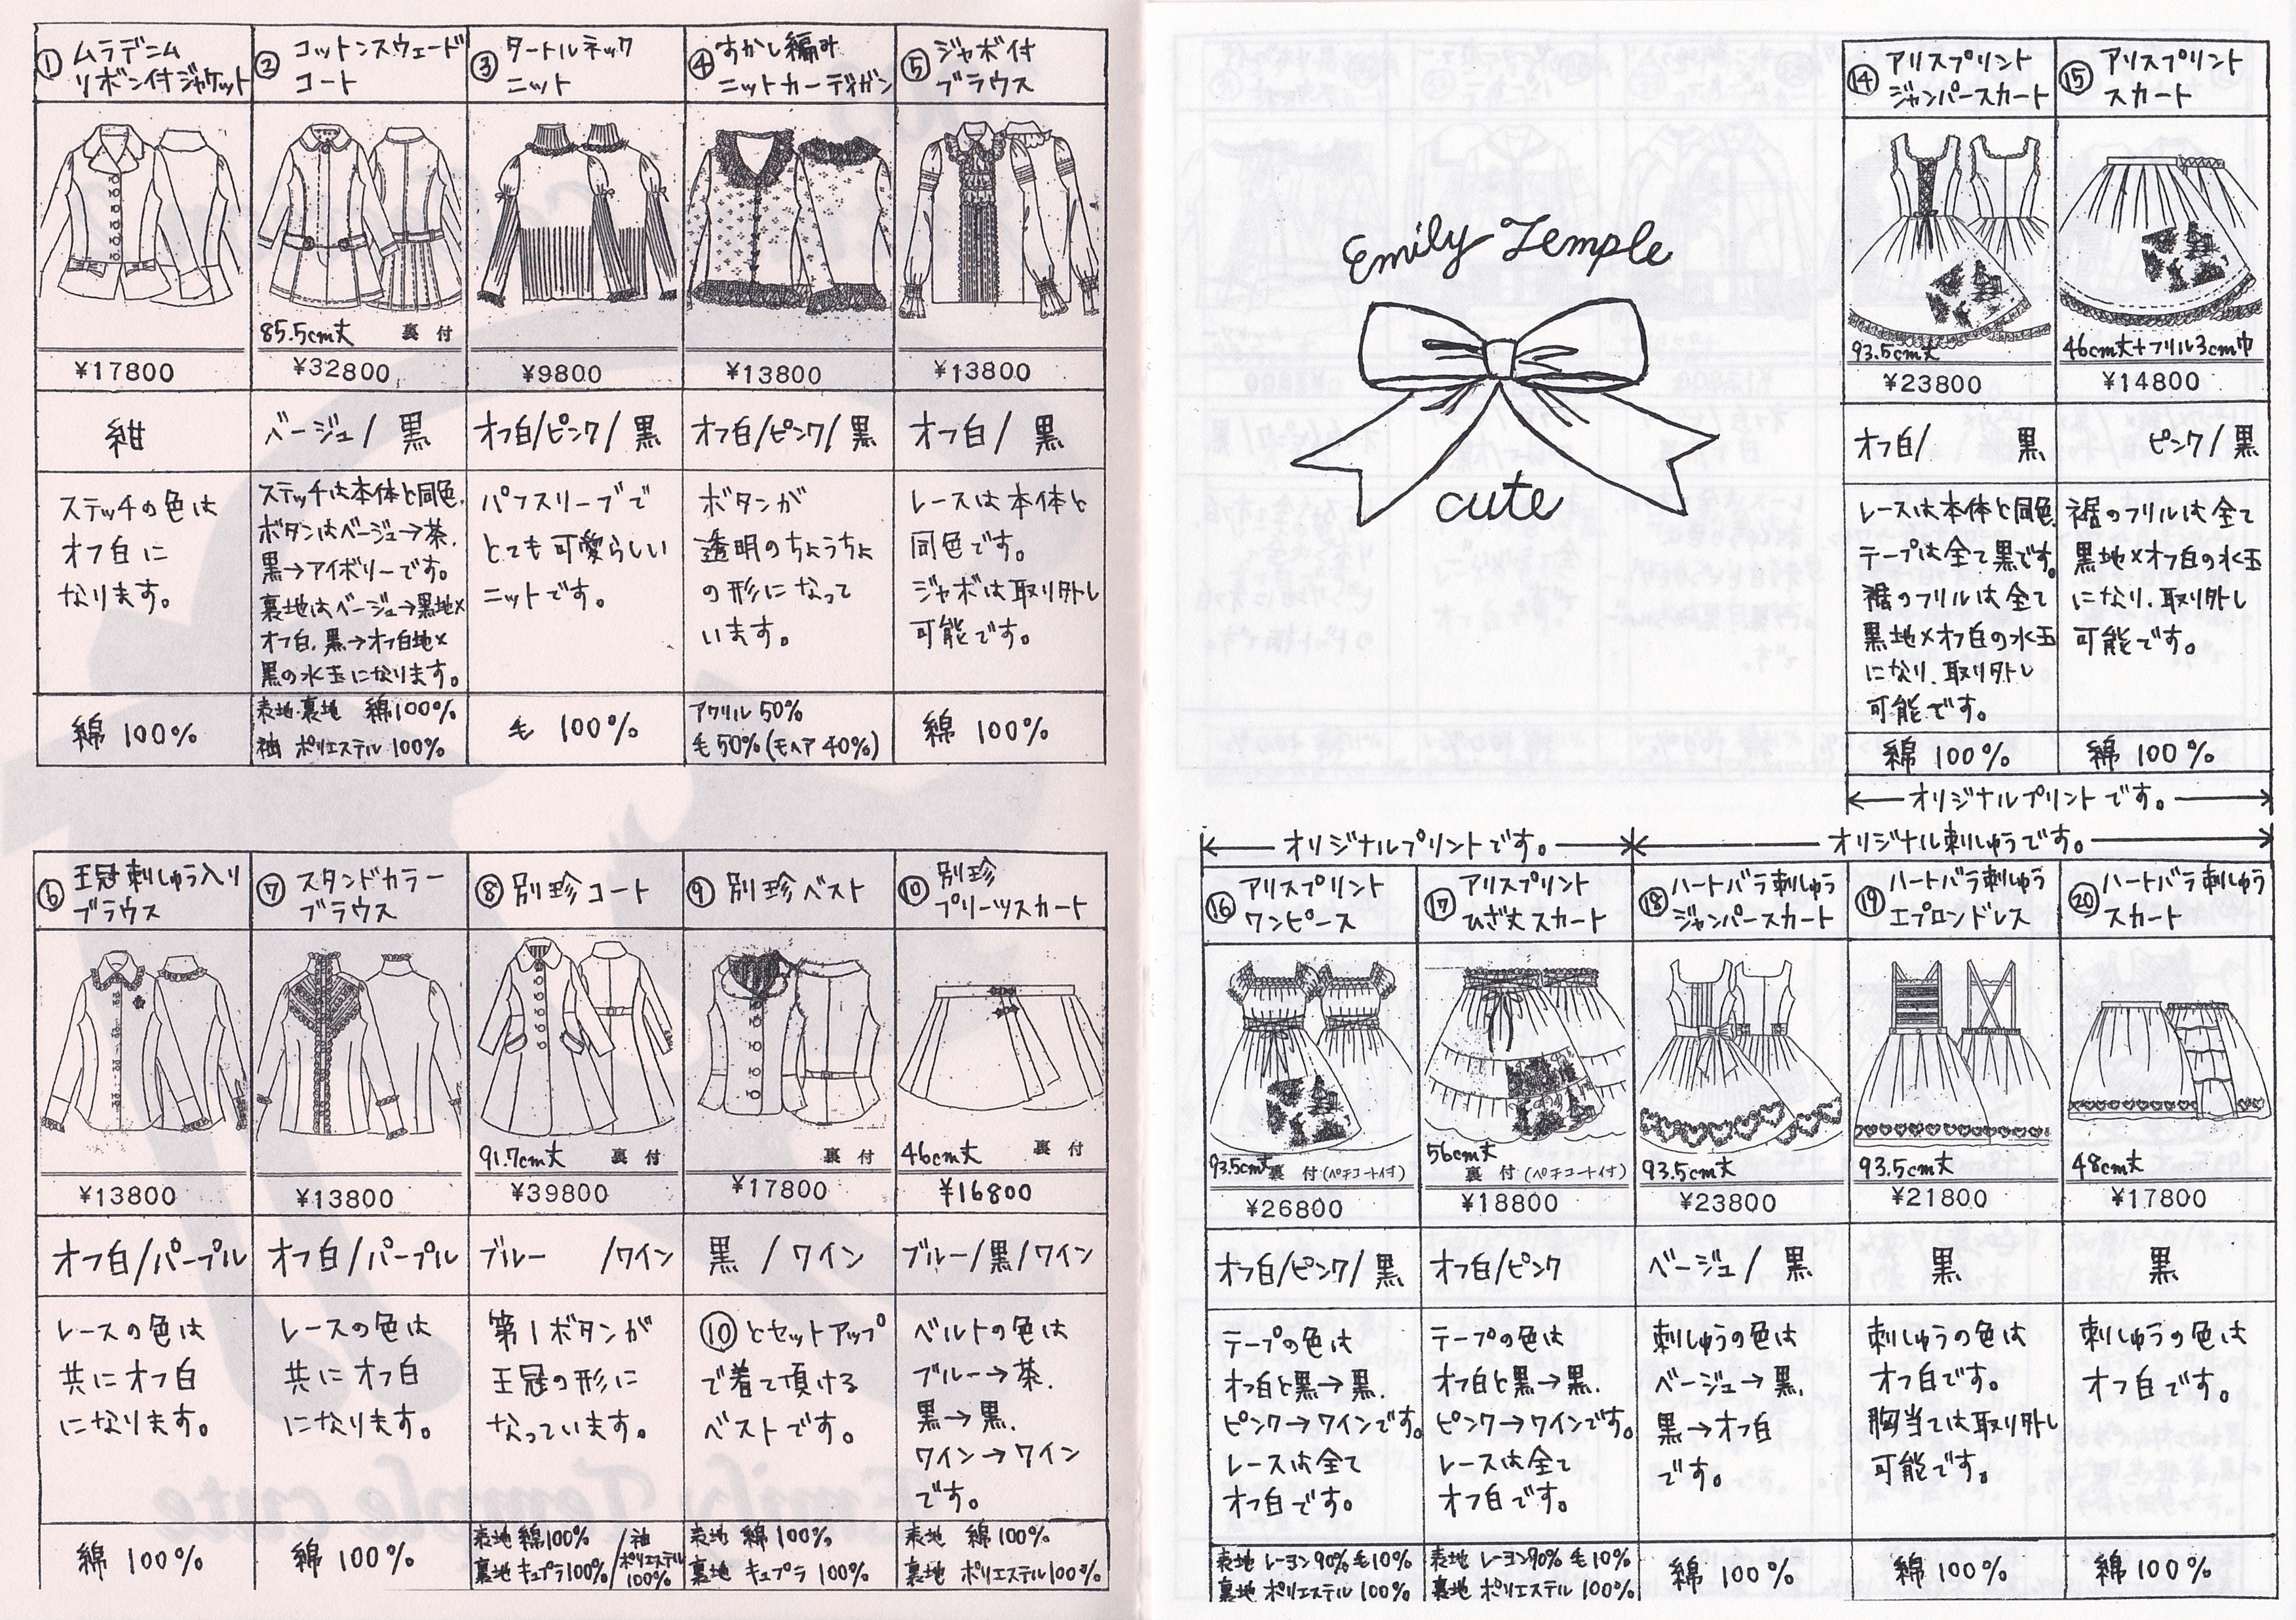 ① ムラデニム
リボン付ジャケット
¥17800
紺
ステッチの色は
オフ白に
なります。
綿 100%
② コットンスウェード
コート
85.5cm丈 裏 付
¥32800
ベージュ/ 黒
ステッチは本体と同色.
ボタンはベージュ→茶.
黒→アイボリーです。
裏地はベージュ→黒地×
オフ白. 黒→オフ白地×
黒の水玉になります。
表地・裏地 綿100%
袖 ポリエステル 100%
③ タートルネック
ニット
¥9800
オフ白/ピンク/ 黒
パフスリーブで
とても可愛らしい
ニットです。
毛 100%
④ すかし編み
ニットカーディガン
¥13800
オフ白/ピンク/ 黒
ボタンが
透明のちょうちょ
の形になって
います。
アクリル 50%
毛50%(モヘア 40%)
⑤ ジャボ付
ブラウス
¥13800
オフ白/ 黒
レースは本体と
同色です。
ジャボは取り外し
可能です。
綿 100%
⑥ 王冠刺しゅう入り
ブラウス
¥13800
オフ白/パープル
レースの色は
共にオフ白
になります。
綿 100%
⑦ スタンドカラー
ブラウス
¥13800
オフ白/パープル
レースの色は
共にオフ白
になります。
綿 100%
⑧ 別珍コート
91.7cm丈 裏 付
¥39800
ブルー /ワイン
第1ボタンが
王冠の形に
なっています。
表地 綿100%
裏地 キュプラ100%
/袖
ポリエステル
100%
⑨ 別珍ベスト
裏 付
¥17800
黒 / ワイン
⑩とセットアップ
で着て頂ける
ベストです。
表地 綿 100%
裏地 キュプラ 100%
⑩ 別珍
プリーツスカート
46cm丈 裏 付
¥16800
ブルー/黒/ワイン
ベルトの色は
ブルー→茶.
黒→黒.
ワイン→ワイン
です。
表地 綿 100%
裏地 ポリエステル100%
Emily Temple
cute
⑭ アリスプリント
ジャンパースカート
93.5cm丈
¥23800
オフ白/ 黒
レースは本体と同色.
テープは全て黒です。
裾のフリルは全て
黒地×オフ白の水玉
になり. 取り外し
可能です。
綿 100%
⑮ アリスプリント
スカート
46cm丈+フリル3cm巾
¥14800
ピンク/ 黒
裾のフリルは全て
黒地×オフ白の水玉
になり. 取り外し
可能です。
綿 100%
オリジナルプリントです。
オリジナルプリントです。
オリジナル刺しゅうです。
⑯ アリスプリント
ワンピース
93.5cm丈 裏 付(ペチコート付)
¥26800
オフ白/ピンク/ 黒
テープの色は
オフ白と黒→黒.
ピンク→ワインです。
レースは全て
オフ白です。
表地 レーヨン90% 毛10%
裏地 ポリエステル 100%
⑰ アリスプリント
ひざ丈スカート
56cm丈
裏 付 (ペチコート付)
¥18800
オフ白/ピンク
テープの色は
オフ白と黒→黒.
ピンク→ワインです。
レースは全て
オフ白です。
表地 レーヨン90% 毛10%
裏地 ポリエステル 100%
⑱ ハートバラ刺しゅう
ジャンパースカート
93.5cm丈
¥23800
ベージュ/ 黒
刺しゅうの色は
ベージュ→黒.
黒→オフ白
です。
綿 100%
⑲ ハートバラ刺しゅう
エプロンドレス
93.5cm丈
¥21800
黒
刺しゅうの色は
オフ白です。
胸当ては取り外し
可能です。
綿 100%
⑳ ハートバラ刺しゅう
スカート
48cm丈
¥17800
黒
刺しゅうの色は
オフ白です。
綿 100%